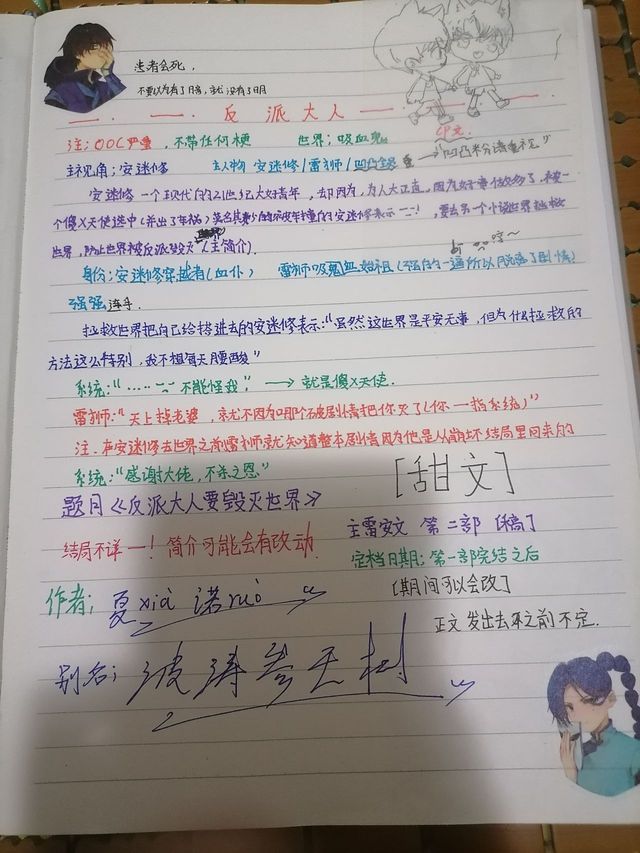 患者会死，
不要以为有了月亮，就没有了日月
一．一．反派大人一．一
注：OOC严重，不带任何梗 世界：吸血鬼 CP文
主视角：安迷修 主人物 安迷修/雷狮/凹凸全员 → "凹凸米分请重视。"
安迷修一个现代的21世纪大好青年，却因为，为人太正直，因为好事做多了，被一
个傻X天使选中(并出了车祸)莫名其妙的安迷修表示一_一！，要去另一个小说世界拯救
世界，防止世界被反派毁灭(主简介)．
身份：安迷修穿越者(血仆) 雷狮吸血始祖(强的一逼所以脱离了剧情)
强强连手．
拯救世界把自己给搭进去的安迷修表示："虽然这世界是平安无事，但为什么拯救的
方法这么特别，我不想每天腰酸"
系统："……一_一不能怪我" → 就是傻X天使．
雷狮："天上掉老婆，就不因为哪个破剧情把你灭了(你一指系统)"
注．在安迷修去世界之前雷狮就知道整本剧情因为他是从崩坏结局里回来的
系统："感谢大佬，不杀之恩"
[甜文]
题目《反派大人要毁灭世界》
主雷安文 第二部 [稿]
结局不详一！简介可能会有改动
定档日期：第一部完结之后
[期间可以会改]
作者：夏xià 诺nuò
正文发出去年之前不定．
别名：波涛参天树